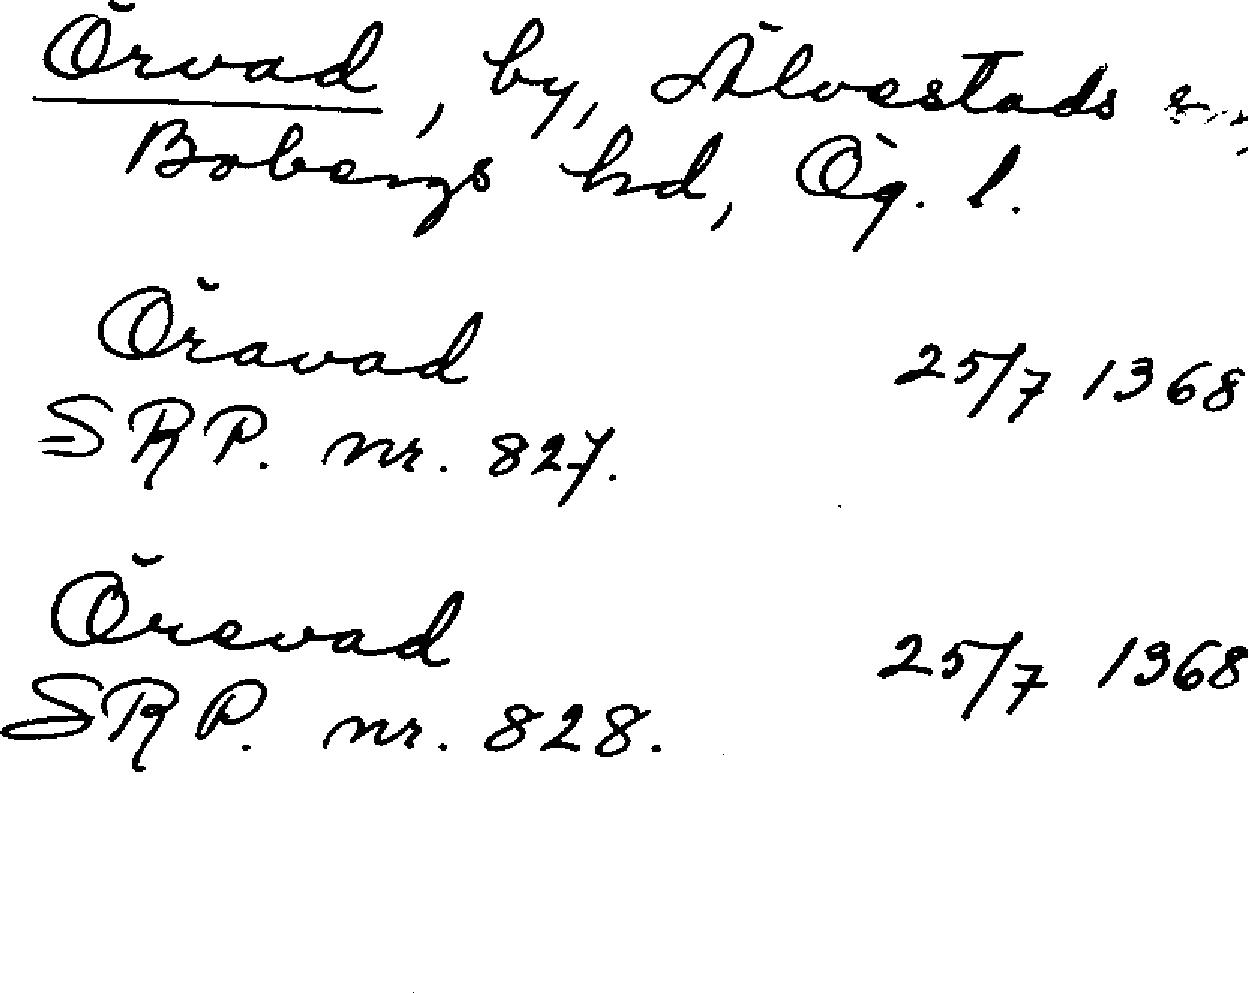 Örvad, by, Älvestads sn,
Bobergs hd, Ög. l.
Öravad 25/7 1368
SRP. nr. 827.
Örevad 25/7 1368
SRP. nr. 828.